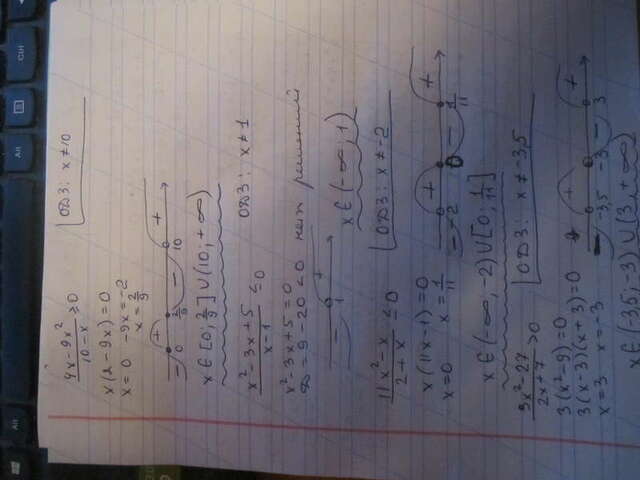 Alt Alt Ctrl
(4x-9x²)/(10-x) ≥ 0 ОДЗ: x ≠ 10
x(2-9x) = 0
x = 0 -9x = -2
x = 2/9
- + - +
0 2/9 10
x ∈ [0; 2/9] ∪ (10; +∞)
(x²-3x+5)/(x-1) ≤ 0 ОДЗ: x ≠ 1
x²-3x+5 = 0
D = 9-20 < 0 нет решений
- +
1
x ∈ (-∞; 1)
(11x²-x)/(2+x) ≤ 0 ОДЗ: x ≠ -2
x(11x-1) = 0
x = 0 x = 1/11
- + - +
-2 0 1/11
x ∈ (-∞, -2) ∪ [0; 1/11]
(3x²-27)/(2x+7) > 0 ОДЗ: x ≠ -3,5
3(x²-9) = 0
3(x-3)(x+3) = 0
x = 3 x = -3
- + - +
-3,5 -3 3
x ∈ (-3,5; -3) ∪ (3, +∞)